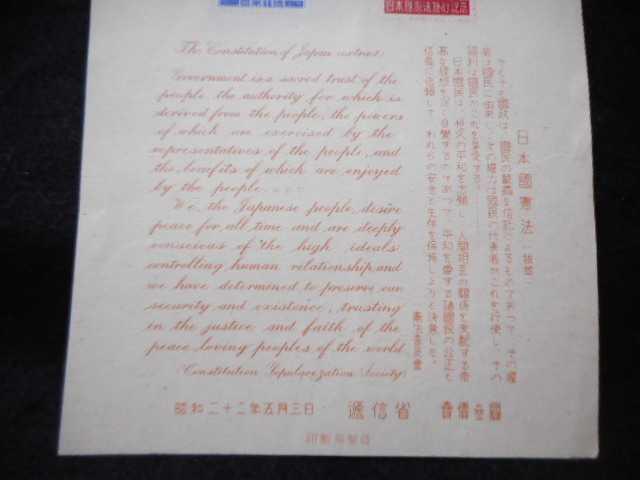 日本国憲法施行記念
The Constitution of Japan (extract)
Government is a sacred trust of the
people, the authority for which is
derived from the people, the powers
of which are exercised by the
representatives of the people, and
the benefits of which are enjoyed
by the people.
We, the Japanese people, desire
peace for all time and are deeply
conscious of the high ideals
controlling human relationship, and
we have determined to preserve our
security and existence, trusting
in the justice and faith of the
peace-loving peoples of the world.
(Constitution Popularization Society)
日本國憲法
そもそも國政は、國民の嚴肅な信託によるものであつて、その權
威は國民に由來し、その權力は國民の代表者がこれを行使し、その
福利は國民がこれを享受する。
日本國民は、恒久の平和を念願し、人間相互の關係を支配する崇
高な理想を深く自覺するのであつて、平和を愛する諸國民の公正と
信義に信頼して、われらの安全と生存を保持しようと決意した。
昭和二十二年五月三日
遞信省
賣價參圓